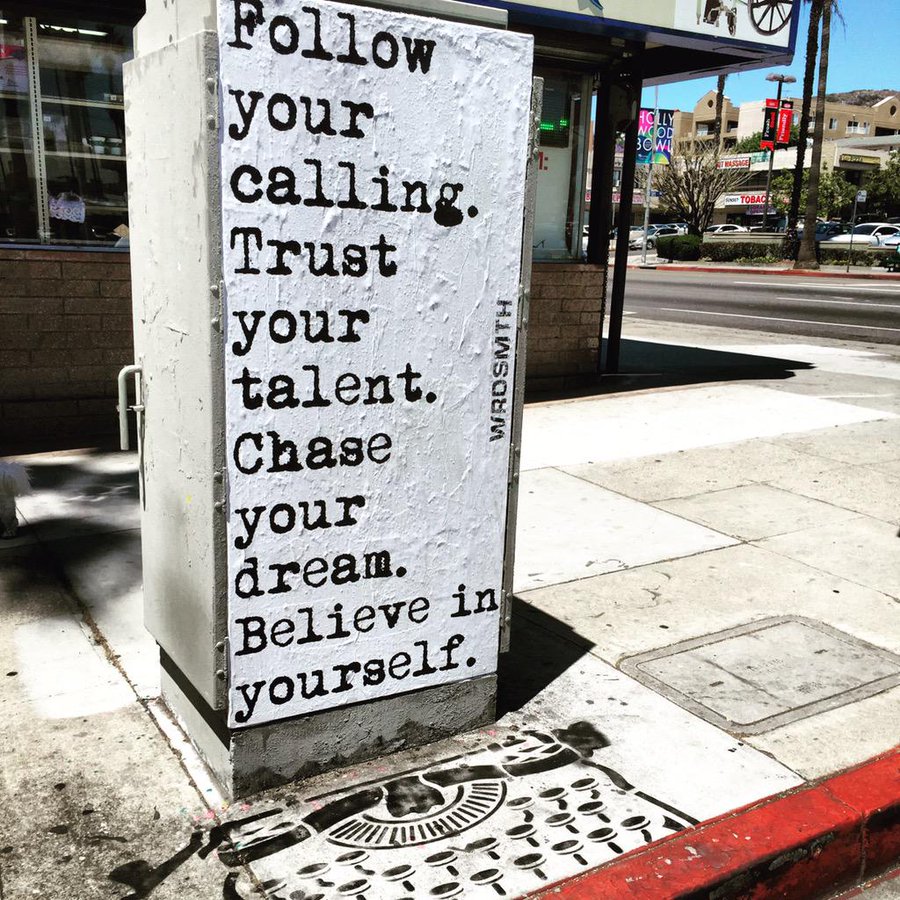 Follow
your
calling.
Trust
your
talent.
Chase
your
dream.
Believe in
yourself.
WRDSMTH
HOLLY
WOOD
BOWL
MASSAGE
TOBAC